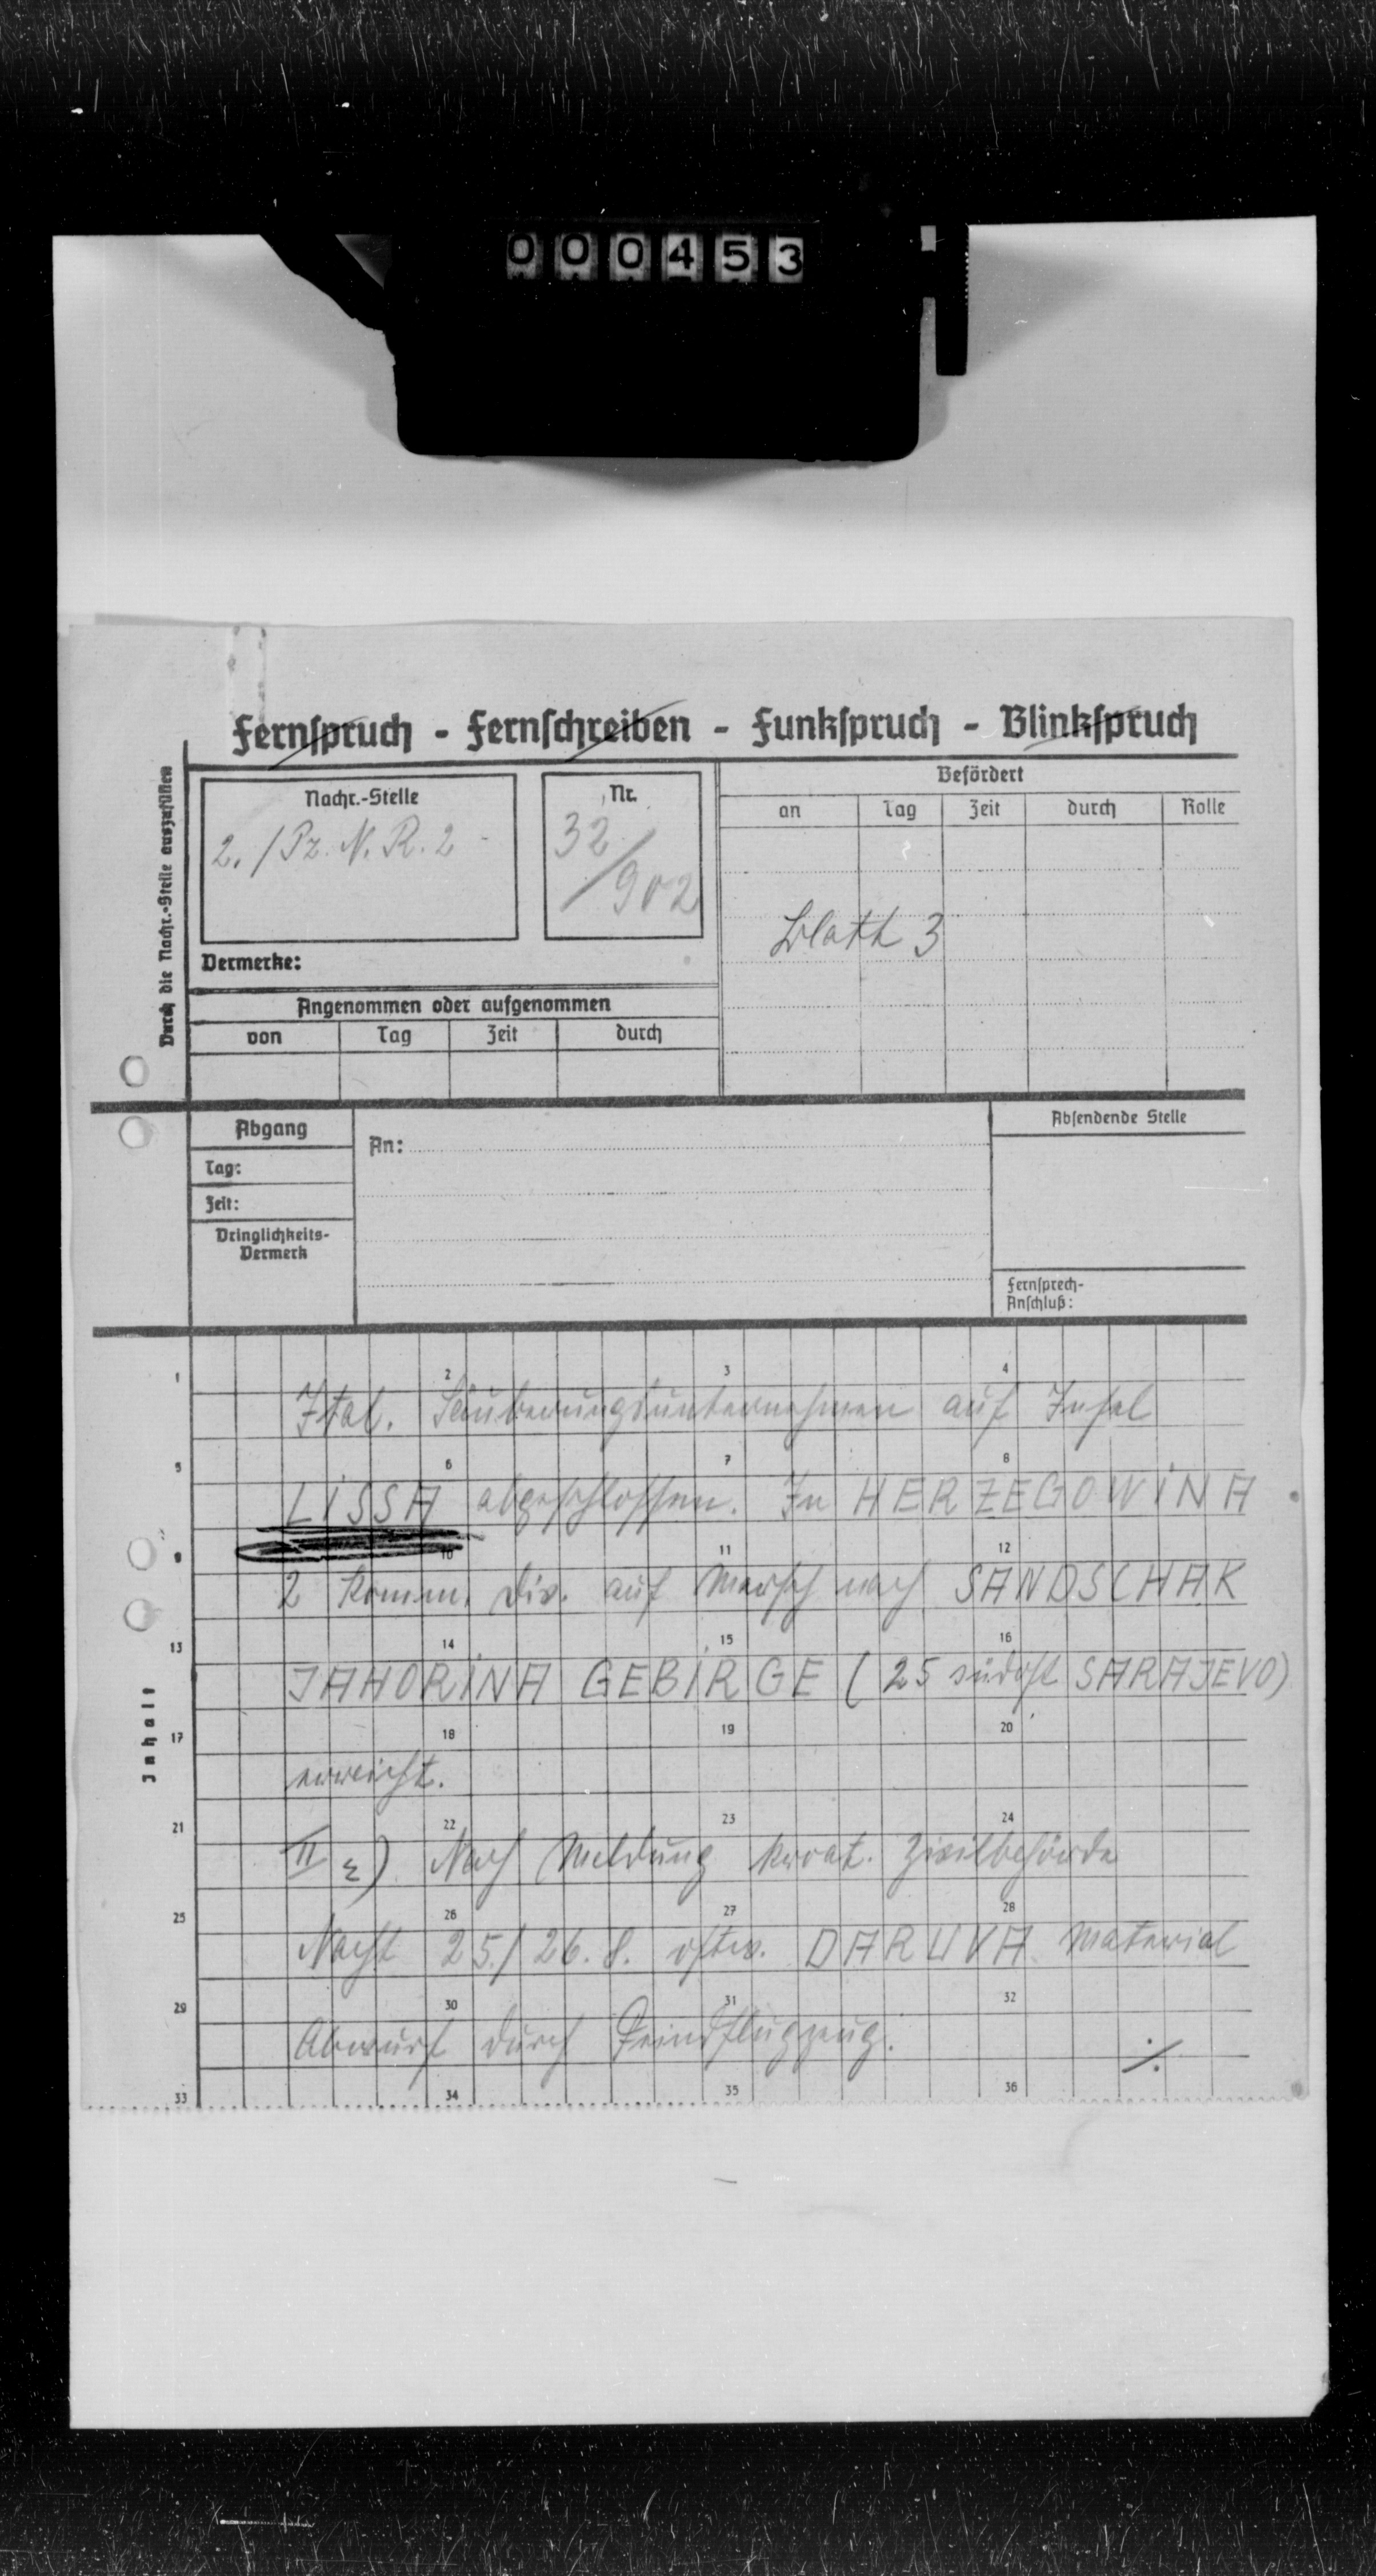 000453
Fernspruch - Fernschreiben - Funkspruch - Blinkspruch
Durch die Nachr.-Stelle auszufüllen
Nachr.-Stelle
2./Pz. N. R. 2
Nr.
32/902
Befördert
an Tag Zeit durch Rolle
Blatt 3
Vermerke:
Angenommen oder aufgenommen
von Tag Zeit durch
Abgang
Tag:
Zeit:
Dringlichkeits-
Vermerk
An:
Absendende Stelle
Fernsprech-
Anschluß:
Inhalt
1 2 3 4
Ital. Säuberungsunternehmen auf Insel
5 6 7 8
LISSA abgeschlossen. In HERZEGOWINA
9 10 11 12
2 komm. Div. auf Marsch nach SANDSCHAK
13 14 15 16
JAHORINA GEBIRGE (25 südostl SARAJEVO)
17 18 19 20
erreicht.
21 22 23 24
II ε) Nach Meldung kroat. Zivilbehörde
25 26 27 28
Nacht 25./26.8. ostw. DARUVA Material
29 30 31 32
Abwurf durch Feindflugzeug. ./.
33 34 35 36